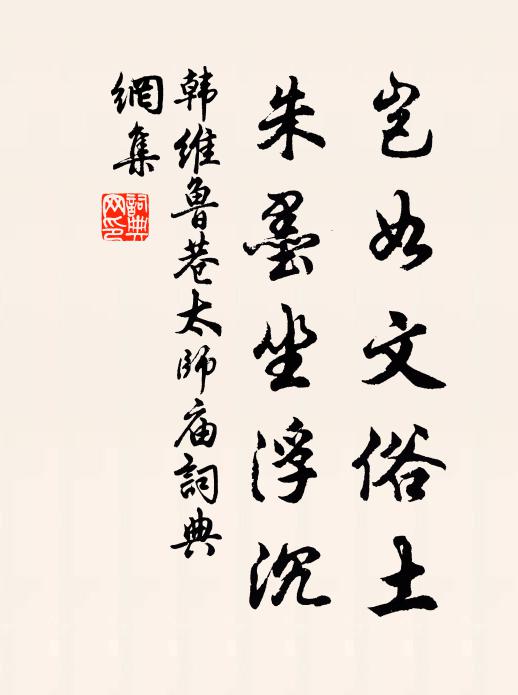 岂如文俗土
朱墨坐浮沉
韩维鲁巷太师庙詞典
網集
詞典网印